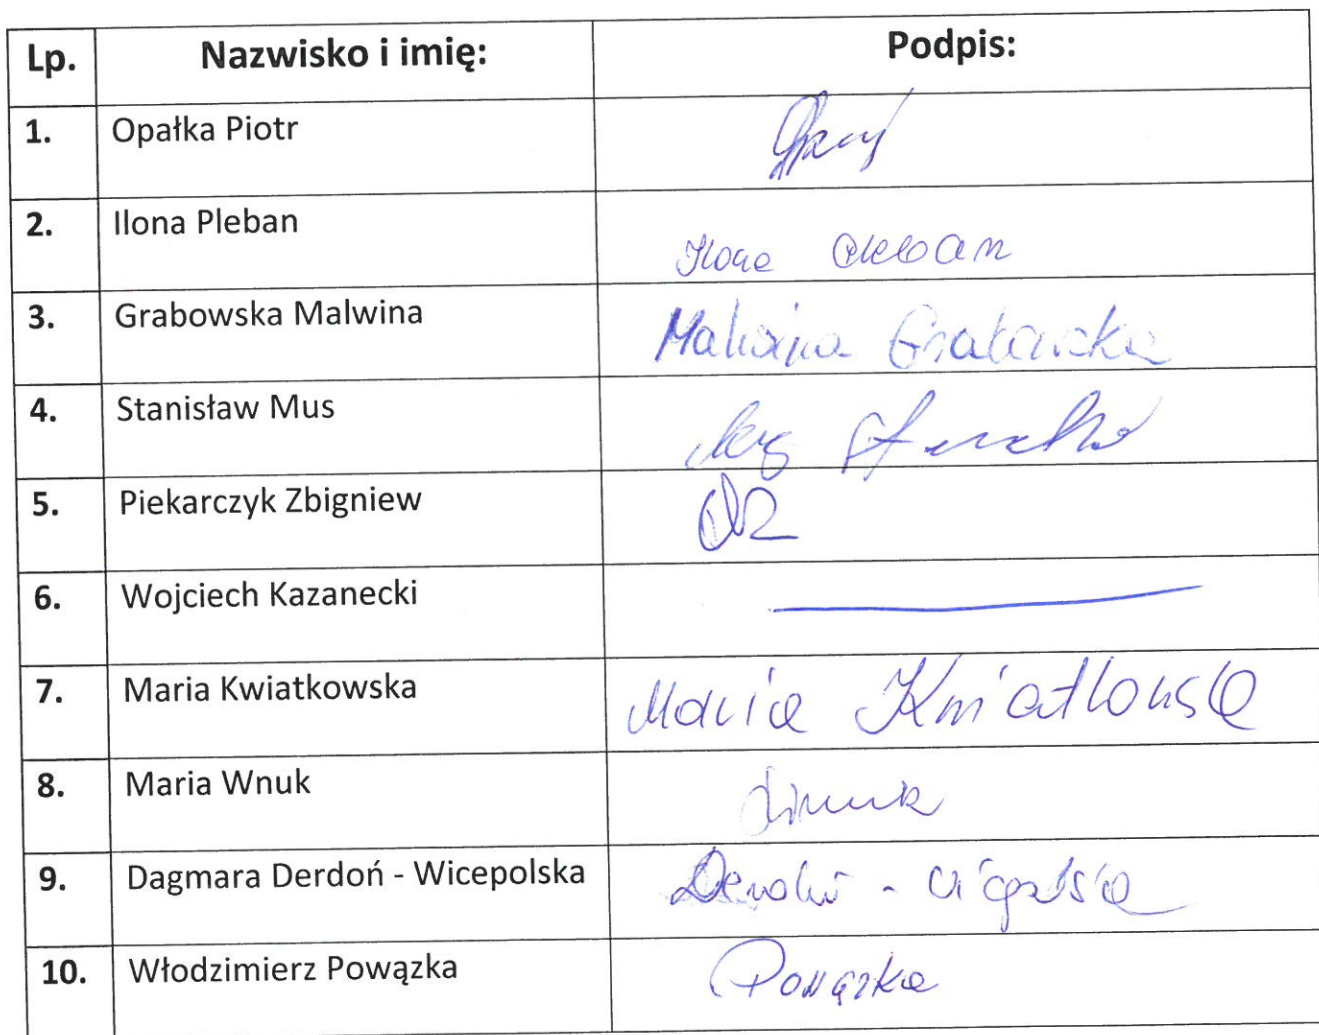 Lp. Nazwisko i imię: Podpis:
1. Opałka Piotr
2. Ilona Pleban Ilona Pleban
3. Grabowska Malwina Malwina Grabowska
4. Stanisław Mus
5. Piekarczyk Zbigniew
6. Wojciech Kazanecki
7. Maria Kwiatkowska Maria Kwiatkowska
8. Maria Wnuk
9. Dagmara Derdoń - Wicepolska
10. Włodzimierz Powązka Powązka